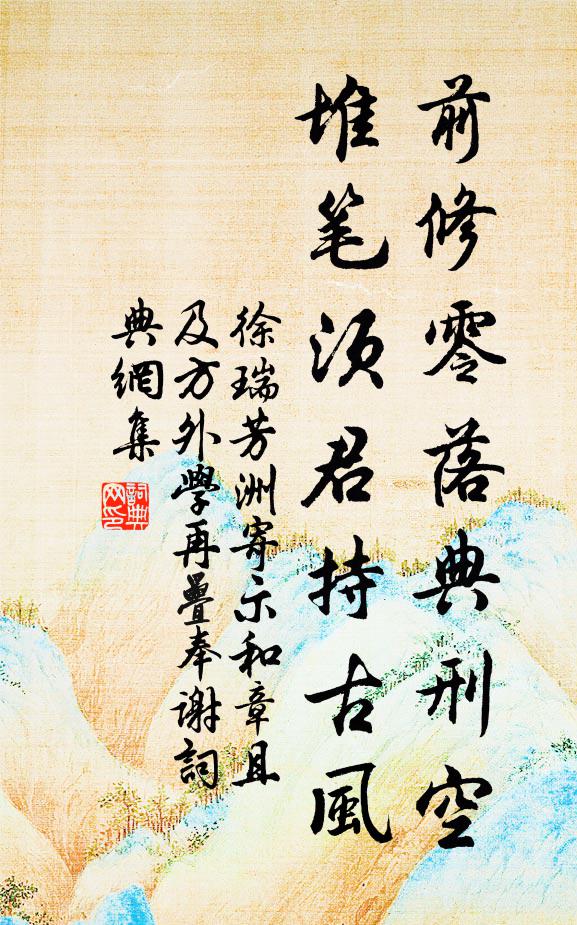 前修零落典刑空
堆笔须君持古風
徐瑞芳洲寄示和章且
及方外學再疊奉谢詞
典網集
詞典网印